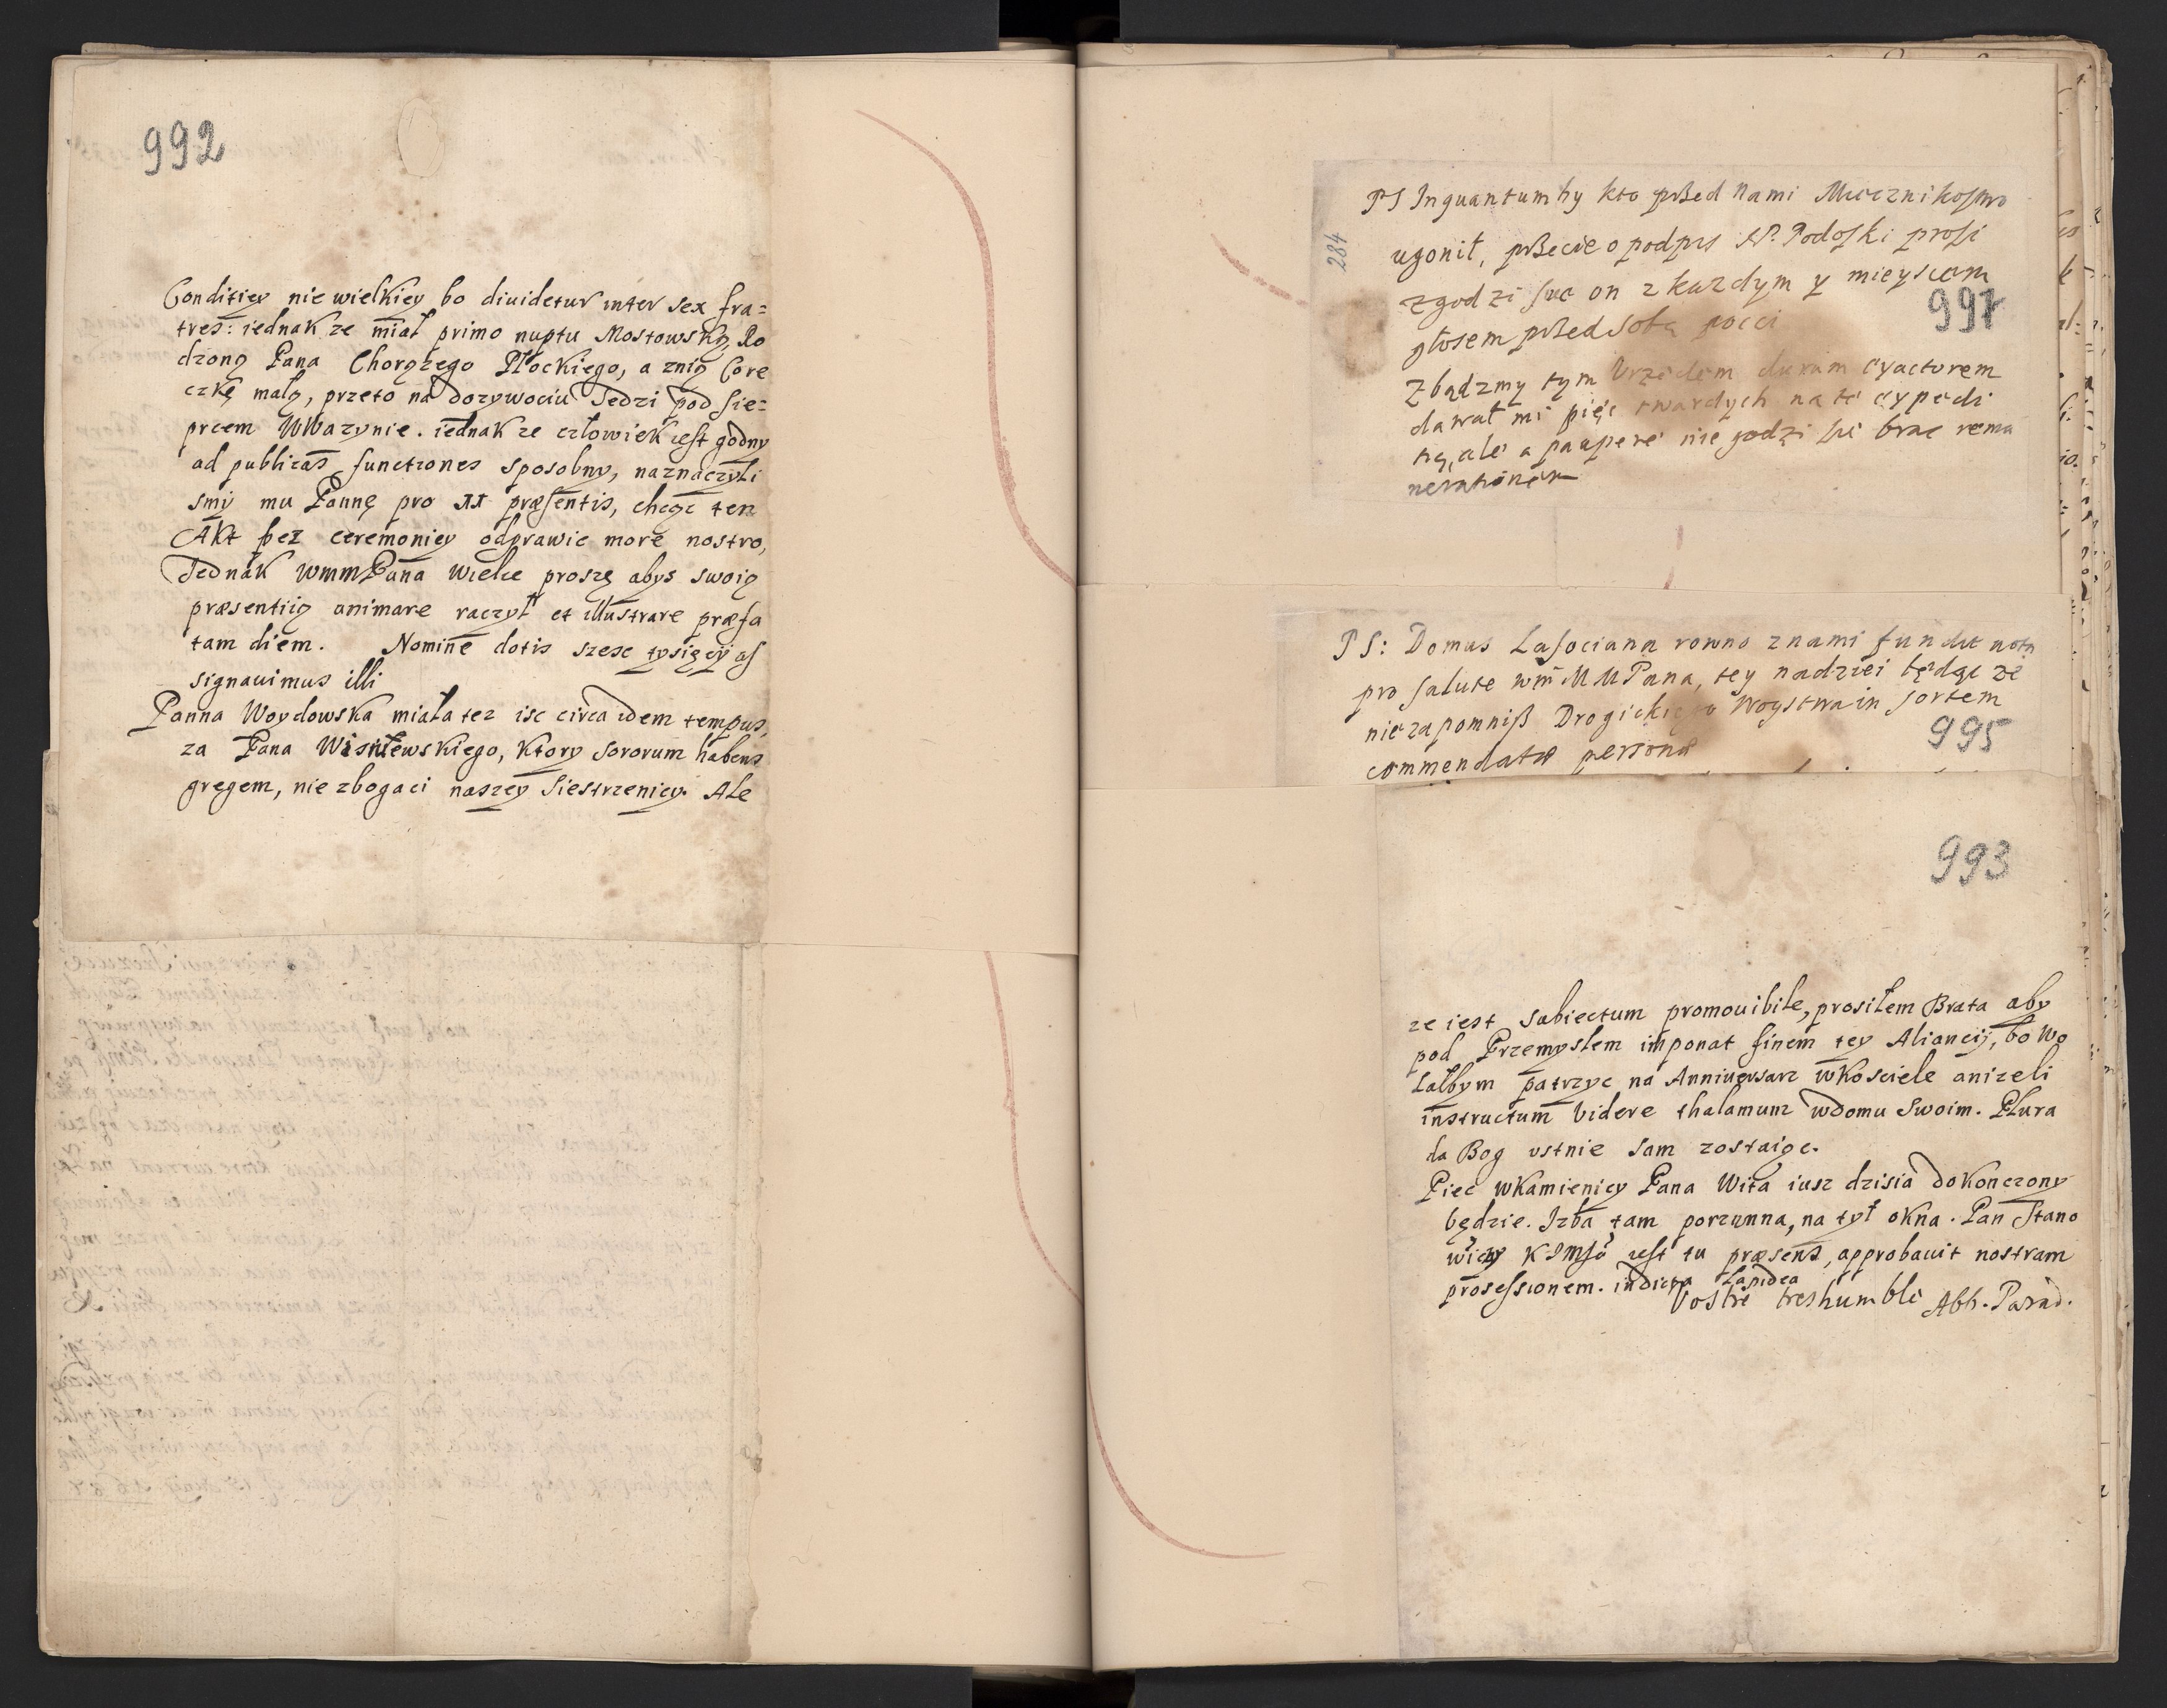 992
Conditiey nie wielkiey bo diuidetur inter sex fra=
tres: iednak ze miał primo nuptu Mostowską Ro
dzoną Pana Chorążego Płockiego, a znią Core
czkę małą, przeto na dozywociu Sedzi pod Sie=
prcem WWazynie. iednak ze człowiek iest godny
ad publicas functiones sposobny, naznaczyli
smy mu Pannę pro præsentis, chcąc ten
Akt bez ceremoniey odprawic more nostro,
Jednak WmmPana Wielce proszę abys swoią
præsentiią animare raczył et illustrare præfa
tam diem. Nomine dotis szesc tysięcy as
signauimus illi
Panna Woydowska miała tez isc circa idem tempus,
za Pana Wisniewskiego, Ktory Sororum habens
gregem, nie zbogaci naszey Siestrzenicy. Ale
284
PS Inquantum by kto przed Nami Miecznikostwo
ugonił, przecie o podpis JP. Podoski prosi
zgodzi sie on z kazdym y mieyscem
997
głosem przed sobą
Zbądzmy tym Vrzędem duram exactorem
dawał mi pięc twardych na te expedi
tą, ale a paupere nie godzi sie brac remu
nerationem
PS: Domus Lasociana rowno znami fundit vota
pro salute wm MMPana, tey nadziei będąc ze
nie zapomniß Drogickiego Woystwa in sortem
995
commendatæ personæ
993
ze iest Subiectum promouibile, prosiłem Brata aby
pod Przemyslem imponat finem tey Aliancij, bo Wo
lałbym patrzyc na Anniuersarz wkosciele anizeli
instructum Videre thalamum wdomu Swoim. Plura
da Bog vstnie Sam zostaiąc.
Piec wkamienicy Pana Wita iusz dzisia dokonczony
będzie. Izba tam porzumna, na tył okna. Pan Stano
wiey KJMsci iest tu præsens, approbauit nostram
prosessionem. indicta Lapidea
Vostre treshumble Abb. Parad.